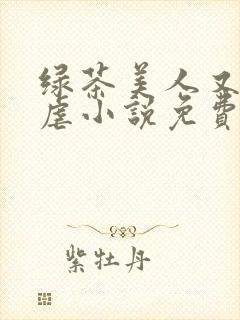 绿茶美人又
虐小説免費
紫牡丹